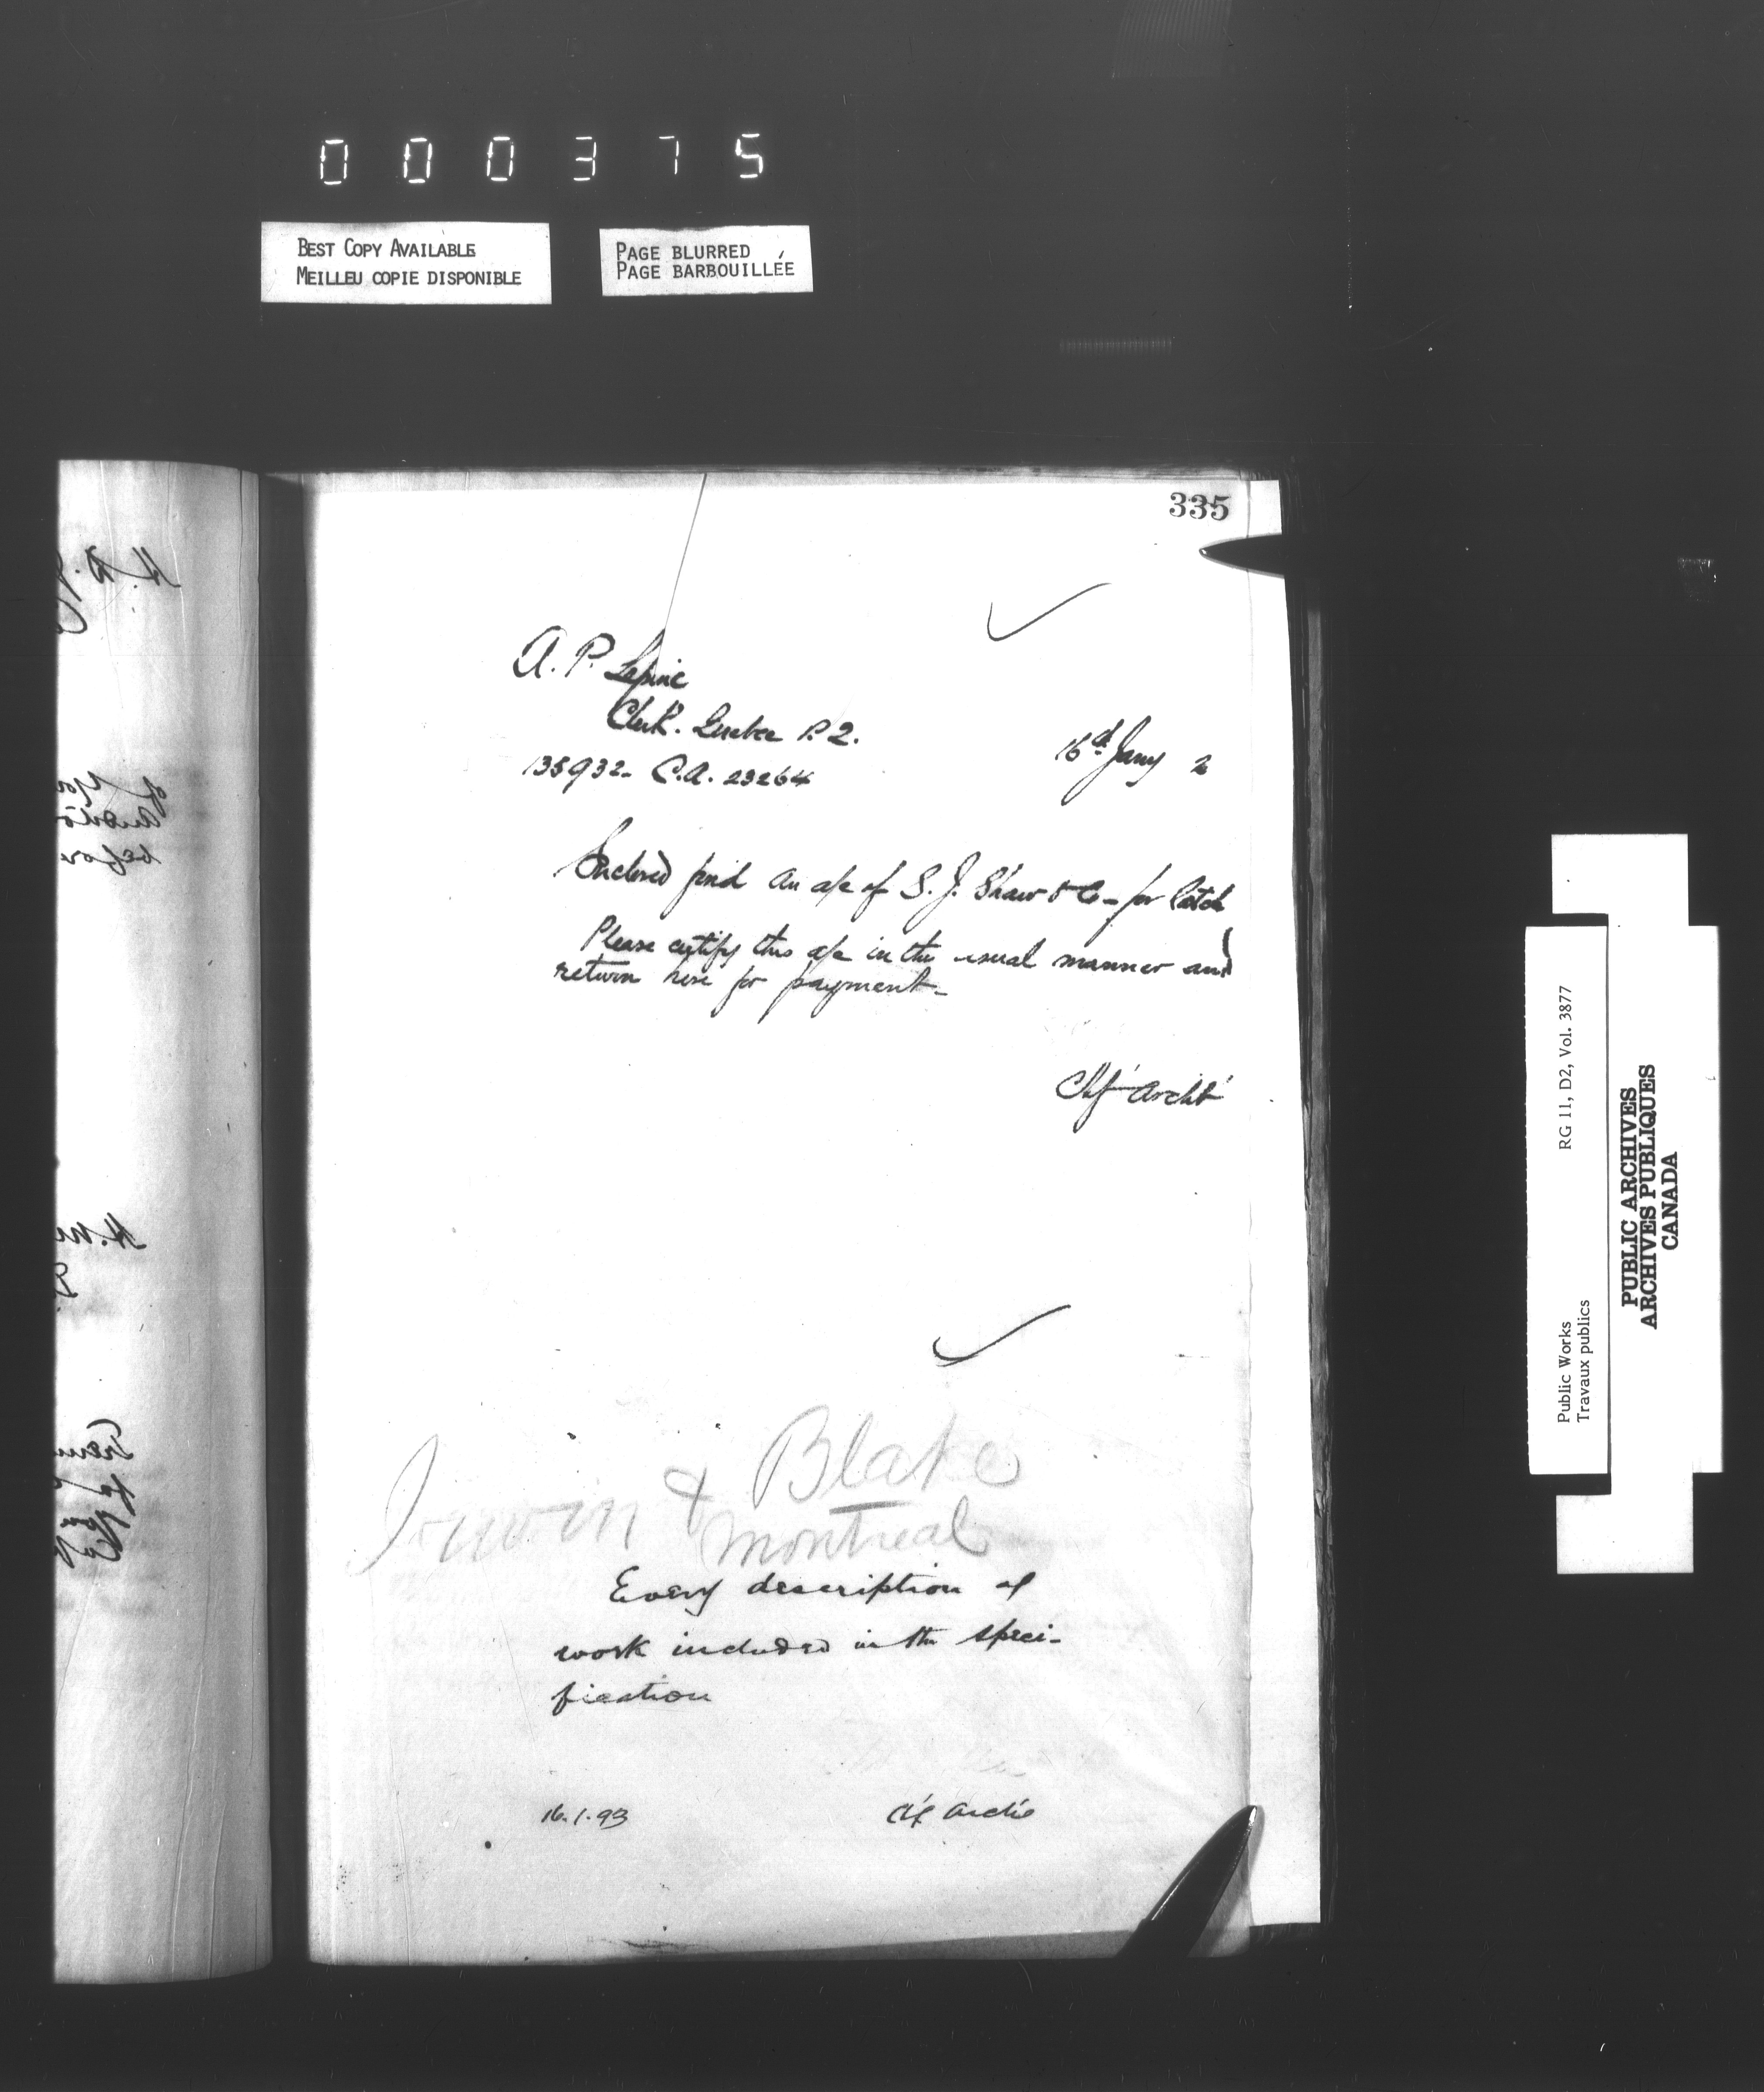 000375
BEST COPY AVAILABLE
MEILLEU COPIE DISPONIBLE
PAGE BLURRED
PAGE BARBOUILLÉE
335
A. P. Lepine
Clerk. Quebec P.Q.
135932- C.A. 23264
16th Jany
Enclosed find an a/c of S. J. Shaw & Co - for latch
Please certify this a/c in the usual manner and
return here for payment-
Chf Archt
Irwin & Blake
Montreal
Every description of
work included in the speci-
fication
16.1.93
Chf Archt
Public Works
Travaux publics
RG 11, D2, Vol. 3877
PUBLIC ARCHIVES
ARCHIVES PUBLIQUES
CANADA